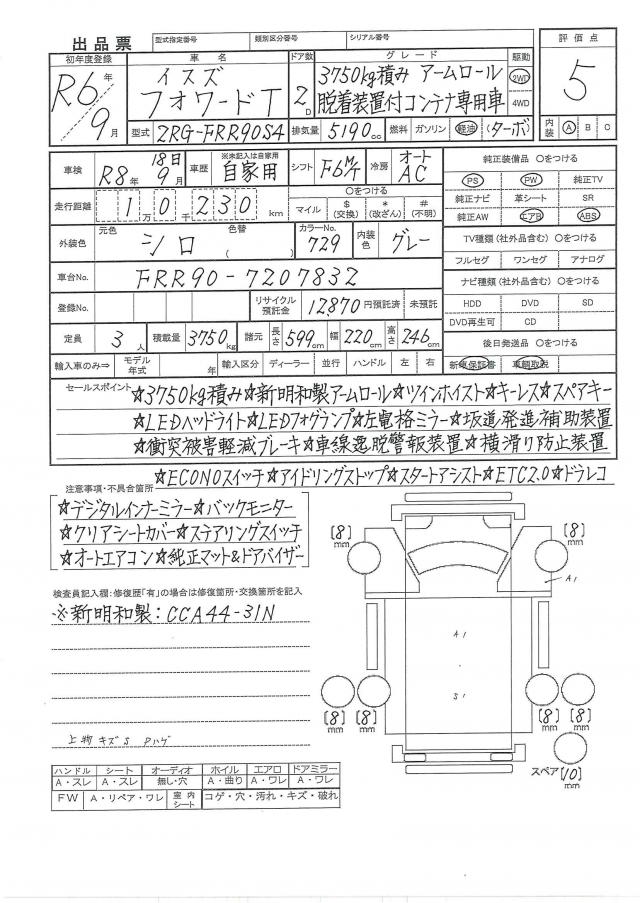 出品票
型式指定番号 類別区分番号 シリアル番号
初年度登録 車名 ドア数 グレード 駆動 評価点
R6年 9月
イスズ フォワードT
2D
3750kg積み アームロール
脱着装置付コンテナ専用車
2WD
4WD
5
型式 2RG-FRR90S4 排気量 5190cc 燃料 ガソリン 軽油 (ターボ) 内装 A B C
車検 R8年 18日 9月 車歴 ※未記入は自家用 自家用 シフト F6M/T 冷房 オートAC 純正装備品 ○をつける
PS PW 純正TV
走行距離 10万千230km ○をつける マイル $(交換) *(改ざん) #(不明)
純正ナビ 革シート SR
純正AW エアB ABS
外装色 元色 シロ 色替( ) カラーNo. 729 内装色 グレー
TV種類(社外品含む) ○をつける
フルセグ ワンセグ アナログ
車台No. FRR90-7207832
ナビ種類(社外品含む) ○をつける
登録No. リサイクル預託金 12,870円預託済 未預託
HDD DVD SD
DVD再生可 CD
定員 3人 積載量 3750kg 諸元 長さ 599cm 幅 220cm 高さ 246cm
後日発送品 ○をつける
輸入車のみ⇨ モデル年式 年 輸入区分 ディーラー 並行 ハンドル 左 右
新車保証書 車輌取説
セールスポイント ☆3750kg積み☆新明和製アームロール☆ツインホイスト☆キーレス☆スペアキー
☆LEDヘッドライト☆LEDフォグランプ☆左電格ミラー☆坂道発進補助装置
☆衝突被害軽減ブレーキ☆車線逸脱警報装置☆横滑り防止装置
☆ECONOスイッチ☆アイドリングストップ☆スタートアシスト☆ETC2.0☆ドラレコ
注意事項・不具合箇所
☆デジタルインナーミラー☆バックモニター
☆クリアシートカバー☆ステアリングスイッチ
☆オートエアコン☆純正マット&ドアバイザー
[8]mm [8]mm
A1
検査員記入欄:修復歴「有」の場合は修復箇所・交換箇所を記入
※新明和製:CCA44-31N
A1
S1
[8]mm [8]mm [8]mm [8]mm
上物キズS Pハゲ
スペア [10]mm
ハンドル シート オーディオ ホイル エアロ ドアミラー
A・スレ A・スレ 無し・穴 A・曲り A・ワレ A・ワレ
FW A・リペア・ワレ 室内シート コゲ・穴・汚れ・キズ・破れ